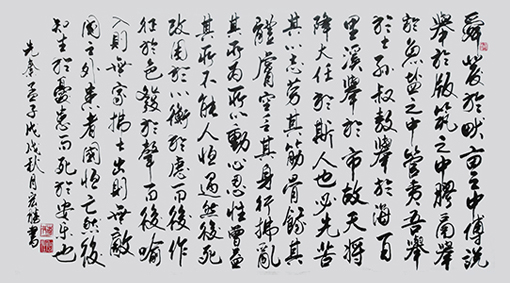 舜發於畎亩之中傅説
舉於版筑之中膠鬲舉
於魚盐之中管夷吾舉
於士孙叔敖舉於海百
里溪舉於市故天将
降大任於斯人也必先苦
其心志劳其筋骨餓其
體膚空乏其身行拂亂
其所为所以動心忍性曾益
其所不能人恒過然後能
改困於心衡於慮而後作
徵於色發於聲而後喻
入則無家拂士出則無敵
國之外患者國恒亡然後
知生於憂患而死於安乐也
先秦孟子戊戌秋月宏 書